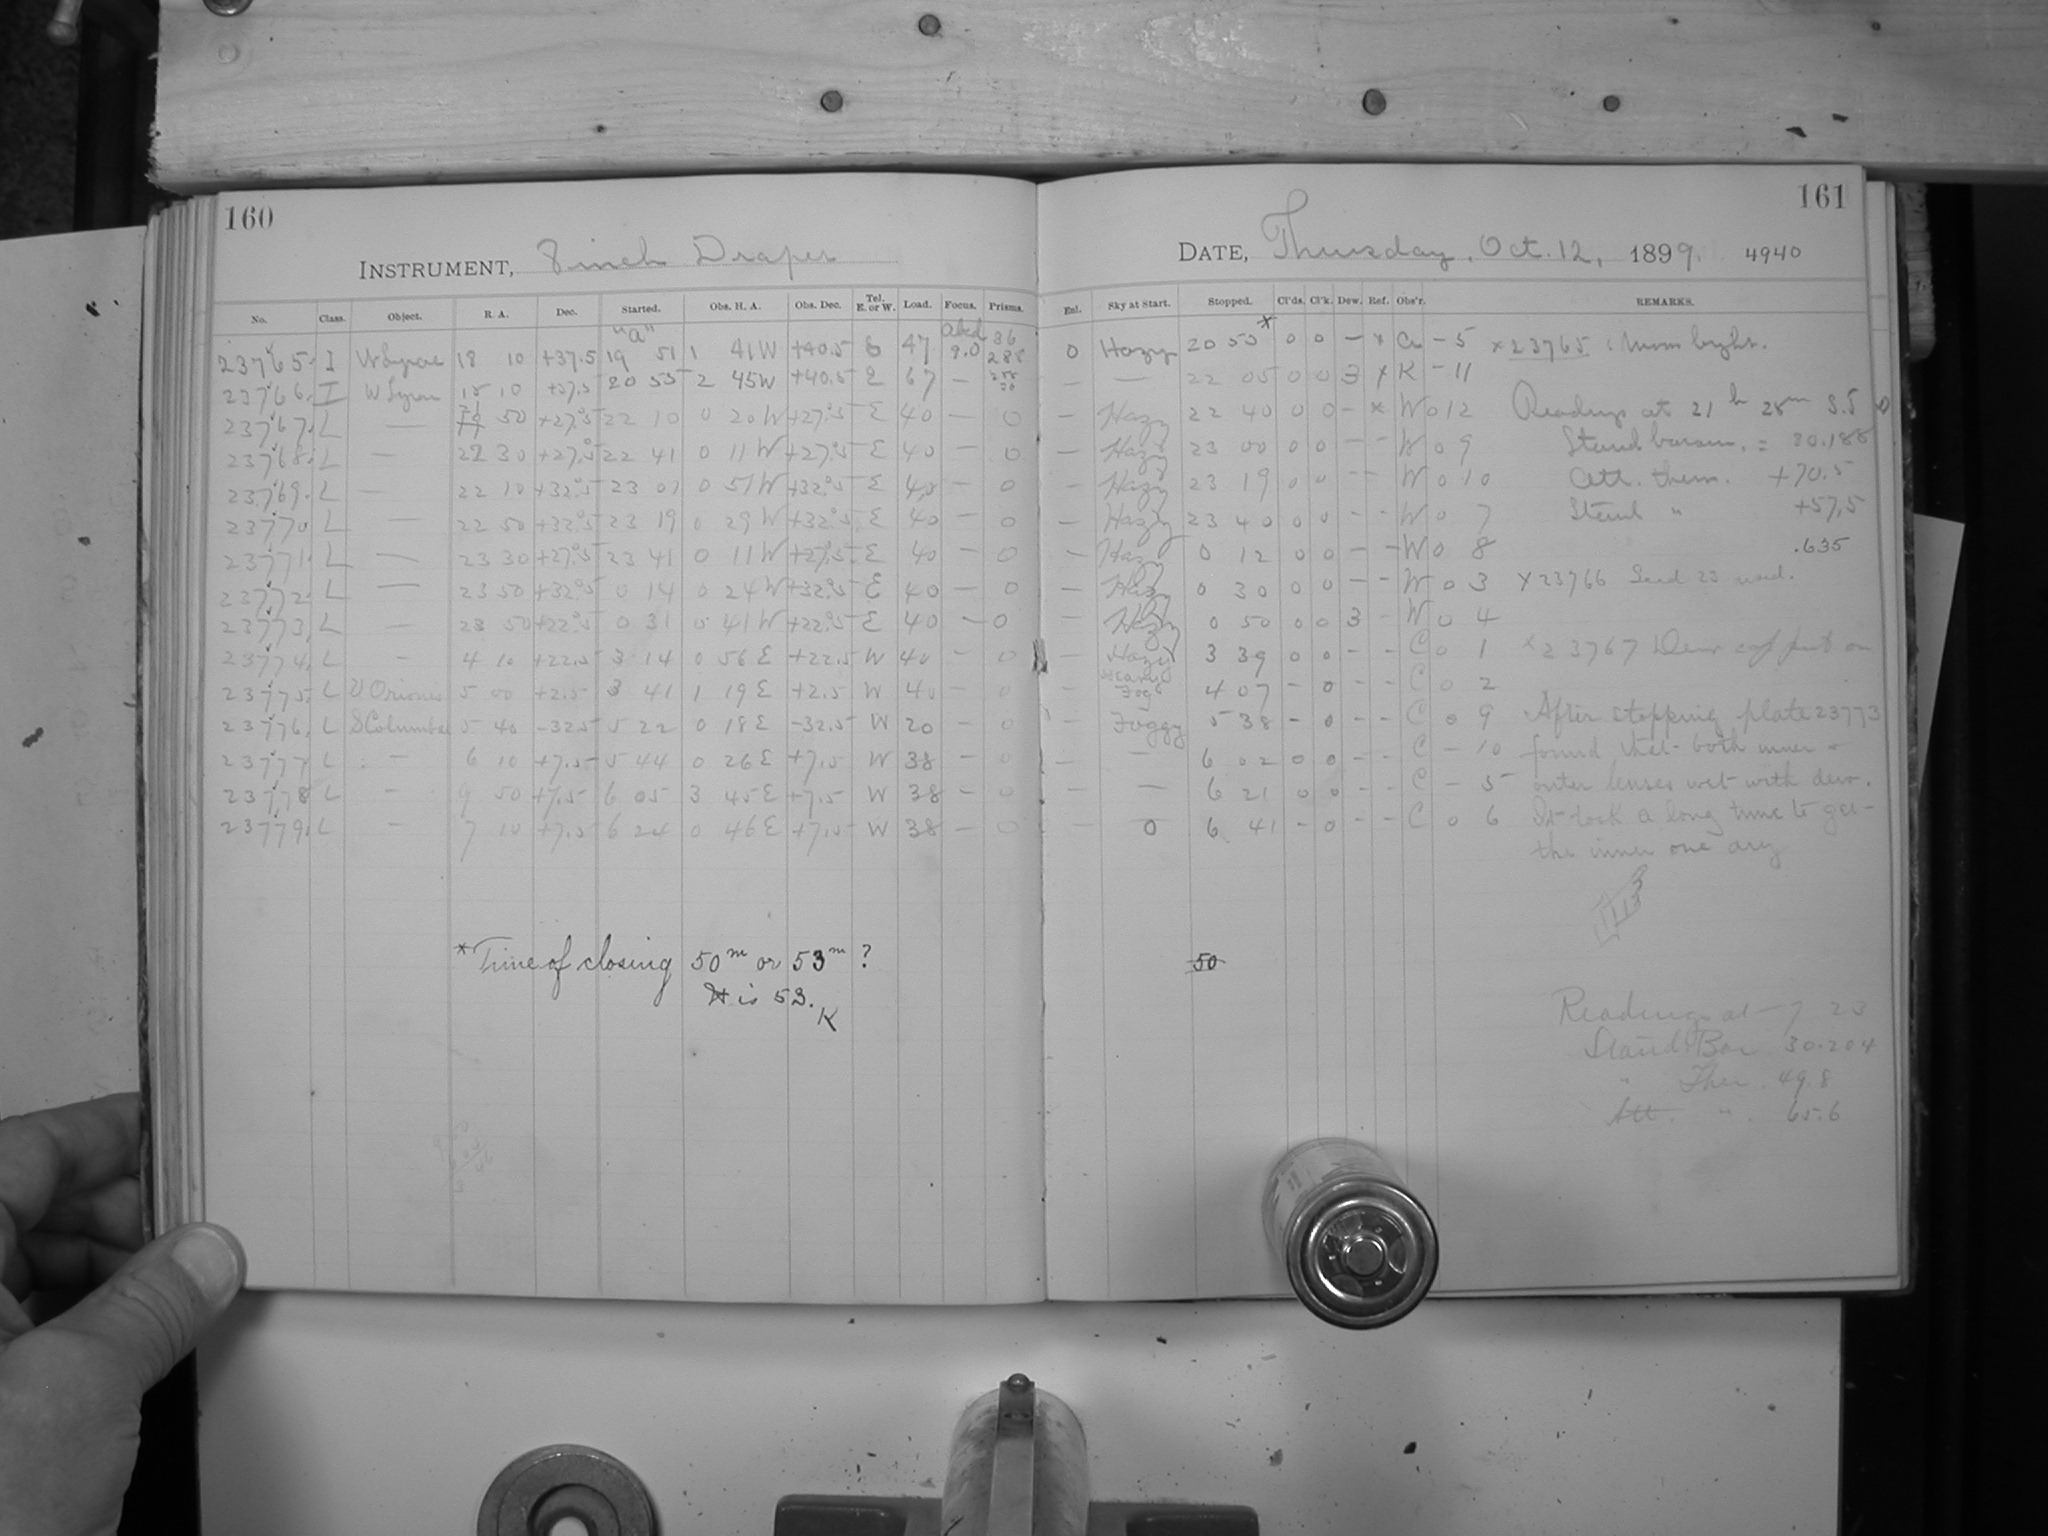 160
INSTRUMENT, 8 inch Draper
No. Class. Object. R. A. Dec. Started. Obs. H. A. Obs. Dec. Tel. E. or W. Load. Focus. Prisms.
"a"
23765 I W Lyrae 18 10 +37.5 19 51 1 41 W +40.5 E 47 9.0 288
23766 I W Lyrae 10 +37.5 20 55 2 45 W +40.5 E 67 –
23767 L — 50 +27.5 22 10 0 20 W +27.5 E 40 — 0
23768 L — 22 30 +27.5 22 41 0 11 W +27.5 E 40 – 0
23769 L — 22 10 +32.5 23 01 0 51 W +32.5 E 40 – 0
23770 L — 22 50 +32.5 23 19 0 29 W +32.5 E 40 – 0
23771 L — 23 30 +27.5 23 41 0 11 W +27.5 E 40 – 0
23772 L — 23 50 +32.5 0 14 0 24 W +32.5 E 40 – 0
23773 L — 23 50 +22.5 0 31 0 41 W +22.5 E 40 – 0
23774 L – 4 10 +22.5 3 14 0 56 E +22.5 W 40 – 0
23775 L U Orionis 5 00 +2.5 3 41 1 19 E +2.5 W 40 – 0
23776 L S Columbae 5 40 -32.5 5 22 0 18 E -32.5 W 20 – 0
23777 L – 6 10 +7.5 5 44 0 26 E +7.5 W 38 – 0
23778 L – 9 50 +7.5 6 05 3 45 E +7.5 W 38 – 0
23779 L – 7 10 +7.5 6 24 0 46 E +7.5 W 38 – 0
*Time of closing 50m or 53m ?
It is 53.
K
161
DATE, Thursday, Oct. 12, 1899. 4940
Enl. Sky at Start. Stopped. Cl'ds. Cl'k. Dew. Ref. Obs'r. REMARKS.
0 Hazy 20 53* 0 0 – x – 5 x 23765 : Moon bright.
– — 22 05 0 0 3 x K – 11
– Hazy 22 40 0 0 – x W 0 12 Readings at 21 h 28m
– Hazy 23 00 0 0 – – W 0 9 Stand barom. = 30.188
– Hazy 23 19 0 0 – – W 0 10 Att. therm. +70.5
– Hazy 23 40 0 0 – – W 0 7 Stand " +57.5
– Hazy 0 12 0 0 – – W 0 8 .635
– Hazy 0 30 0 0 – – W 0 3 x 23766 Load 23 used.
– Hazy 0 50 0 0 3 – W 0 4
– Hazy 3 39 0 0 – – C 0 1 x 23767 Dew cap put on
– Fog 4 07 – 0 – – C 0 2
– Foggy 5 38 – 0 – – C 0 9 After stopping plate 23773
– — 6 02 0 0 – – C – 10 found that both inner &
– — 6 21 0 0 – – C – 5 outer lenses wet with dew.
– 0 6 41 – 0 – – C 0 6 It took a long time to get
the inner one dry
50
Readings at 7 23
Stand Bar 30.204
" Ther. 49.8
Att. " 65.6